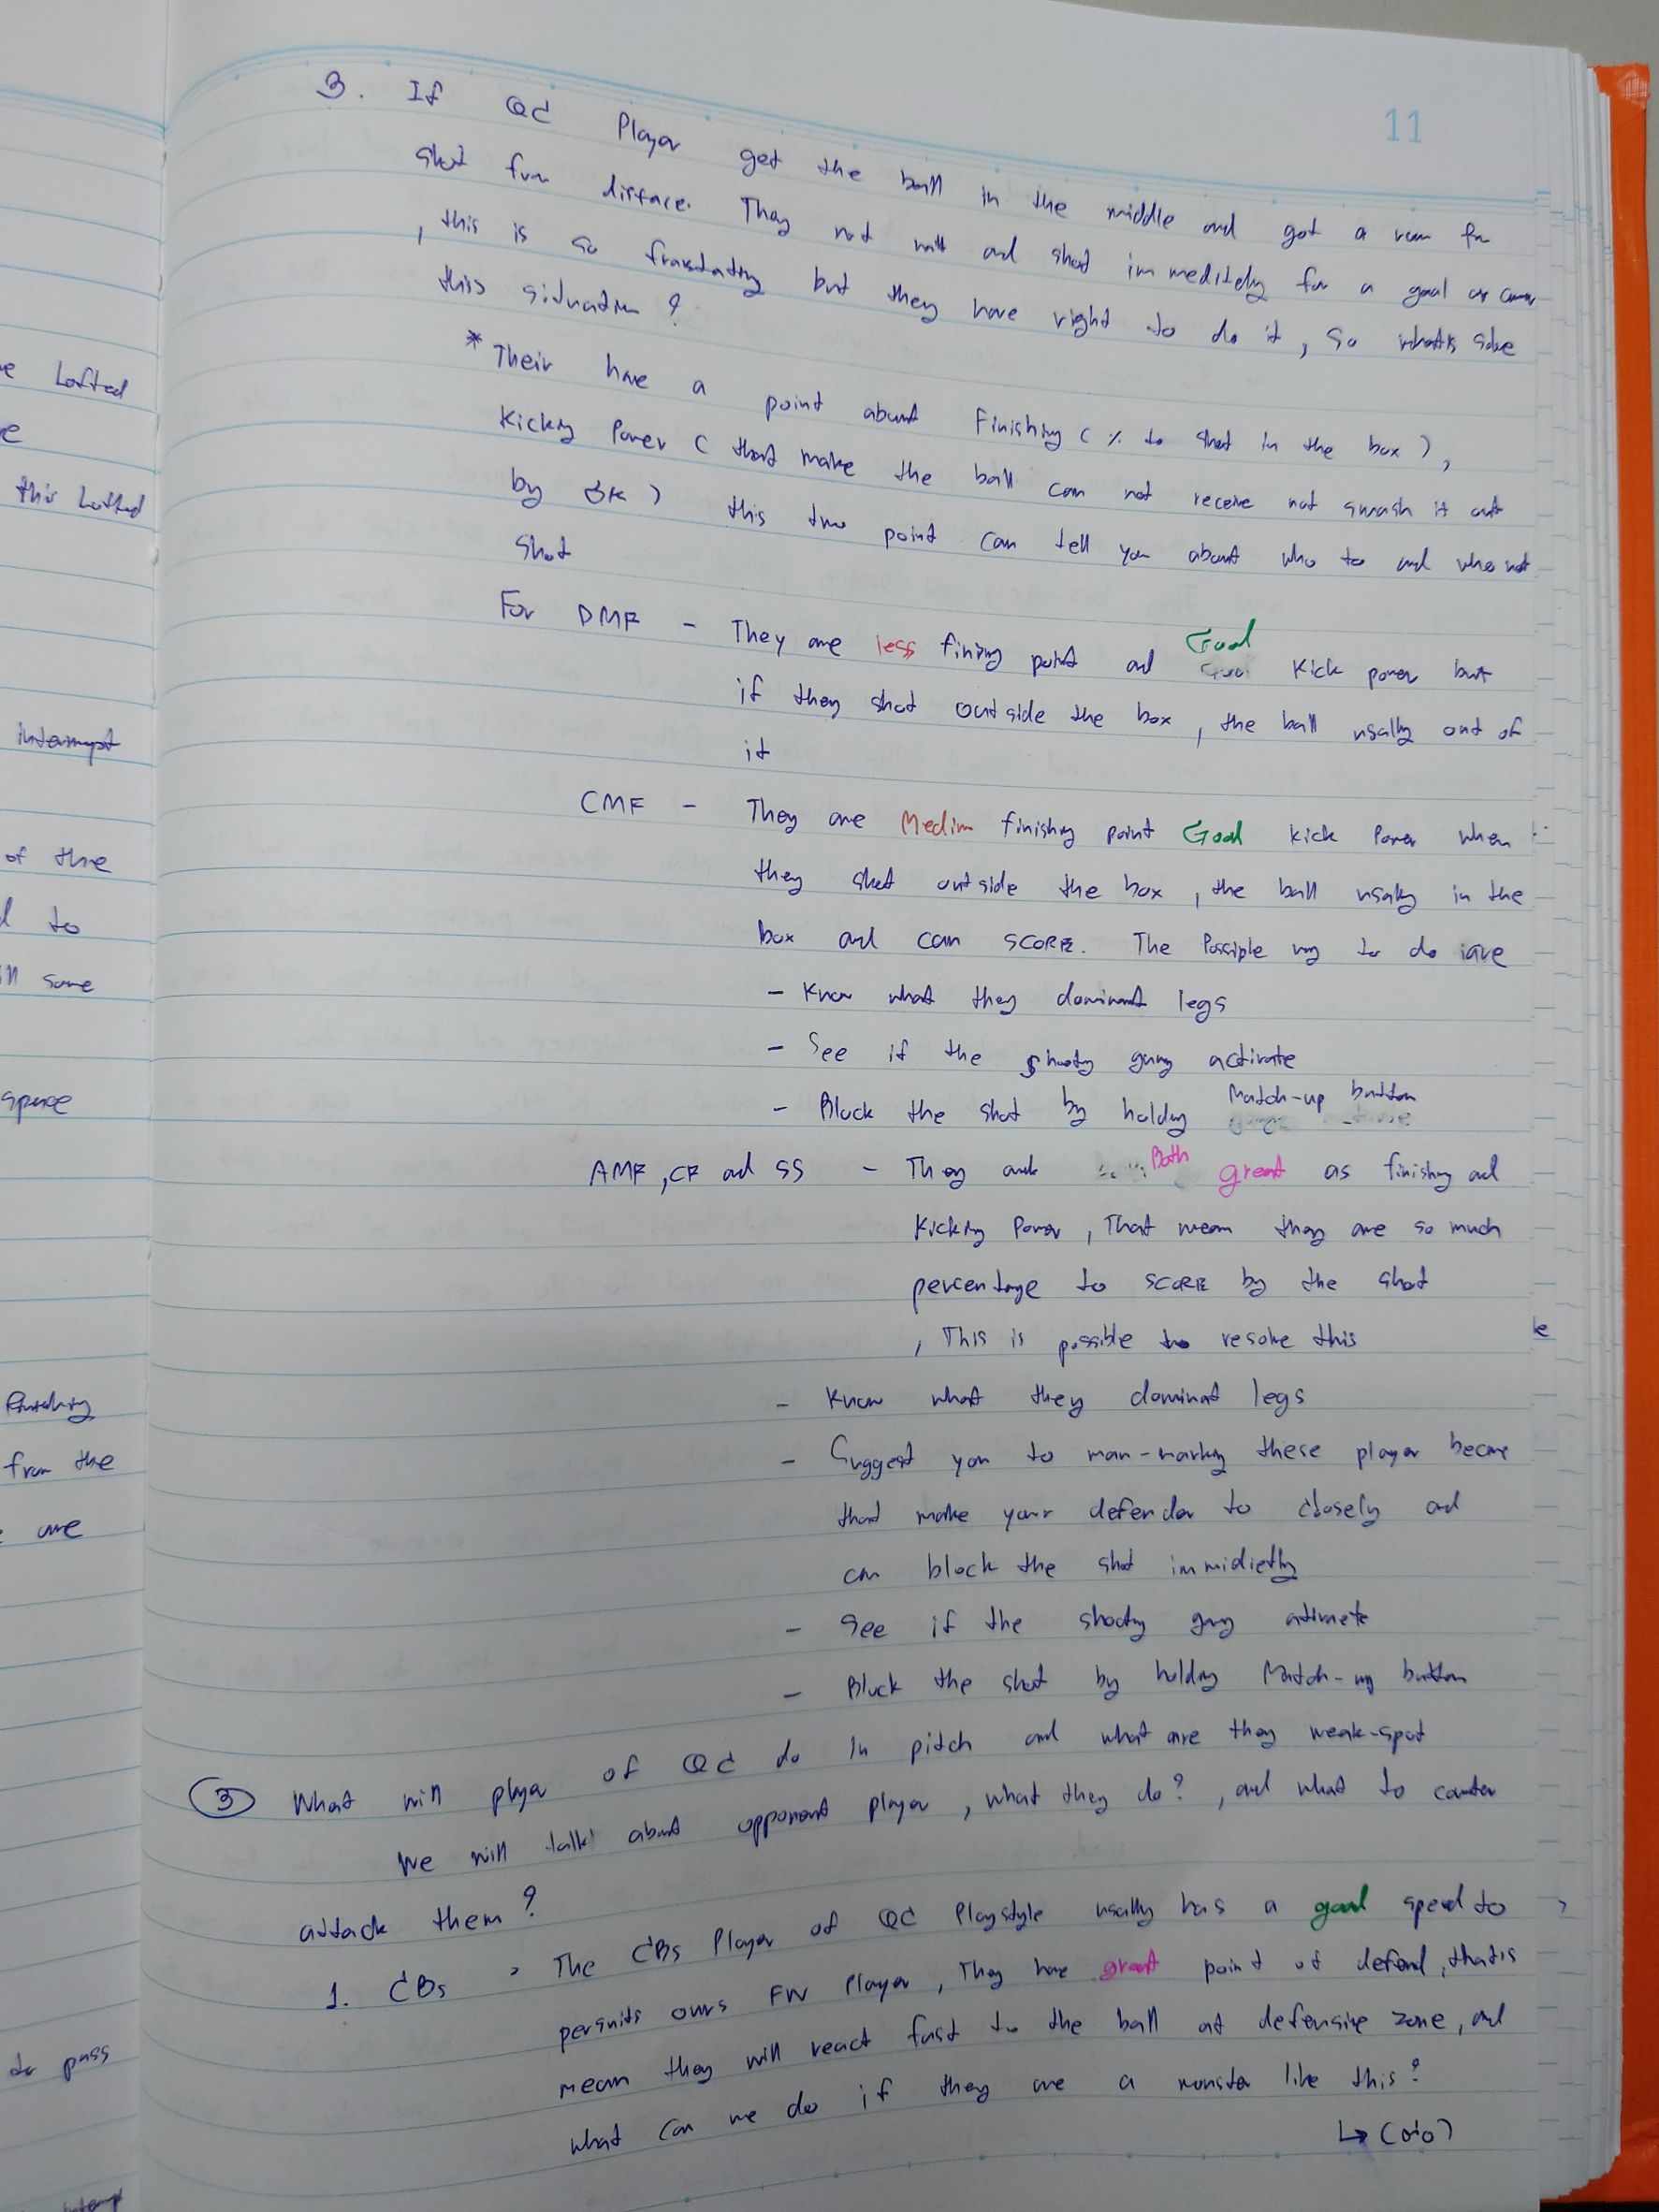 11
3. If QC Player get the ball in the middle and got a room for
shot from distace. They not wait and shot immeditely for a goal or corner
, this is so frustating but they have right to do it, so what's solve
this situation ?
* Their have a point about Finishing ( % to shot in the box ),
Kicking Power ( that make the ball can not receive not smash it out
by GK ) this two point can tell you about who to and who not
shot
For DMF - They are less fining point and Good Kick power but
if they shot outside the box, the ball usally out of
it
CMF - They are Medim finishing point Good Kick Power when
they shot outside the box, the ball usaly in the
box and can SCORE. The Possiple way to do are
- Know what they dominant legs
- See if the shooty gung activate
- Block the shot by holding Match-up button
AMF, CF and SS - They Both great as finishing and
Kicking Power, That mean they are so much
percentage to SCORE by the shot
, This is possible to resolve this
- Know what they dominat legs
- Suggest you to man-marking these player becase
that make your defender to closely and
can block the shot immidietly
- See if the shooty gung
- Block the shot by holding Match-up button
③ What will player of QC do in pitch and what are they weak-spot
We will talk about opponent player, what they do?, and what to counter
attack them ?
1. CBs > The CBs Player of QC Playstyle usually has a good speed to
persuits ours FW Player, They have great point of defend, thatis
mean they will react fast to the ball at defensive zone, and
what can we do if they are a monster like this?
↳ (ต่อ)
e Lofted
e
this Lofted
interrupt
of the
d to
ill some
space
from the
are
to pass